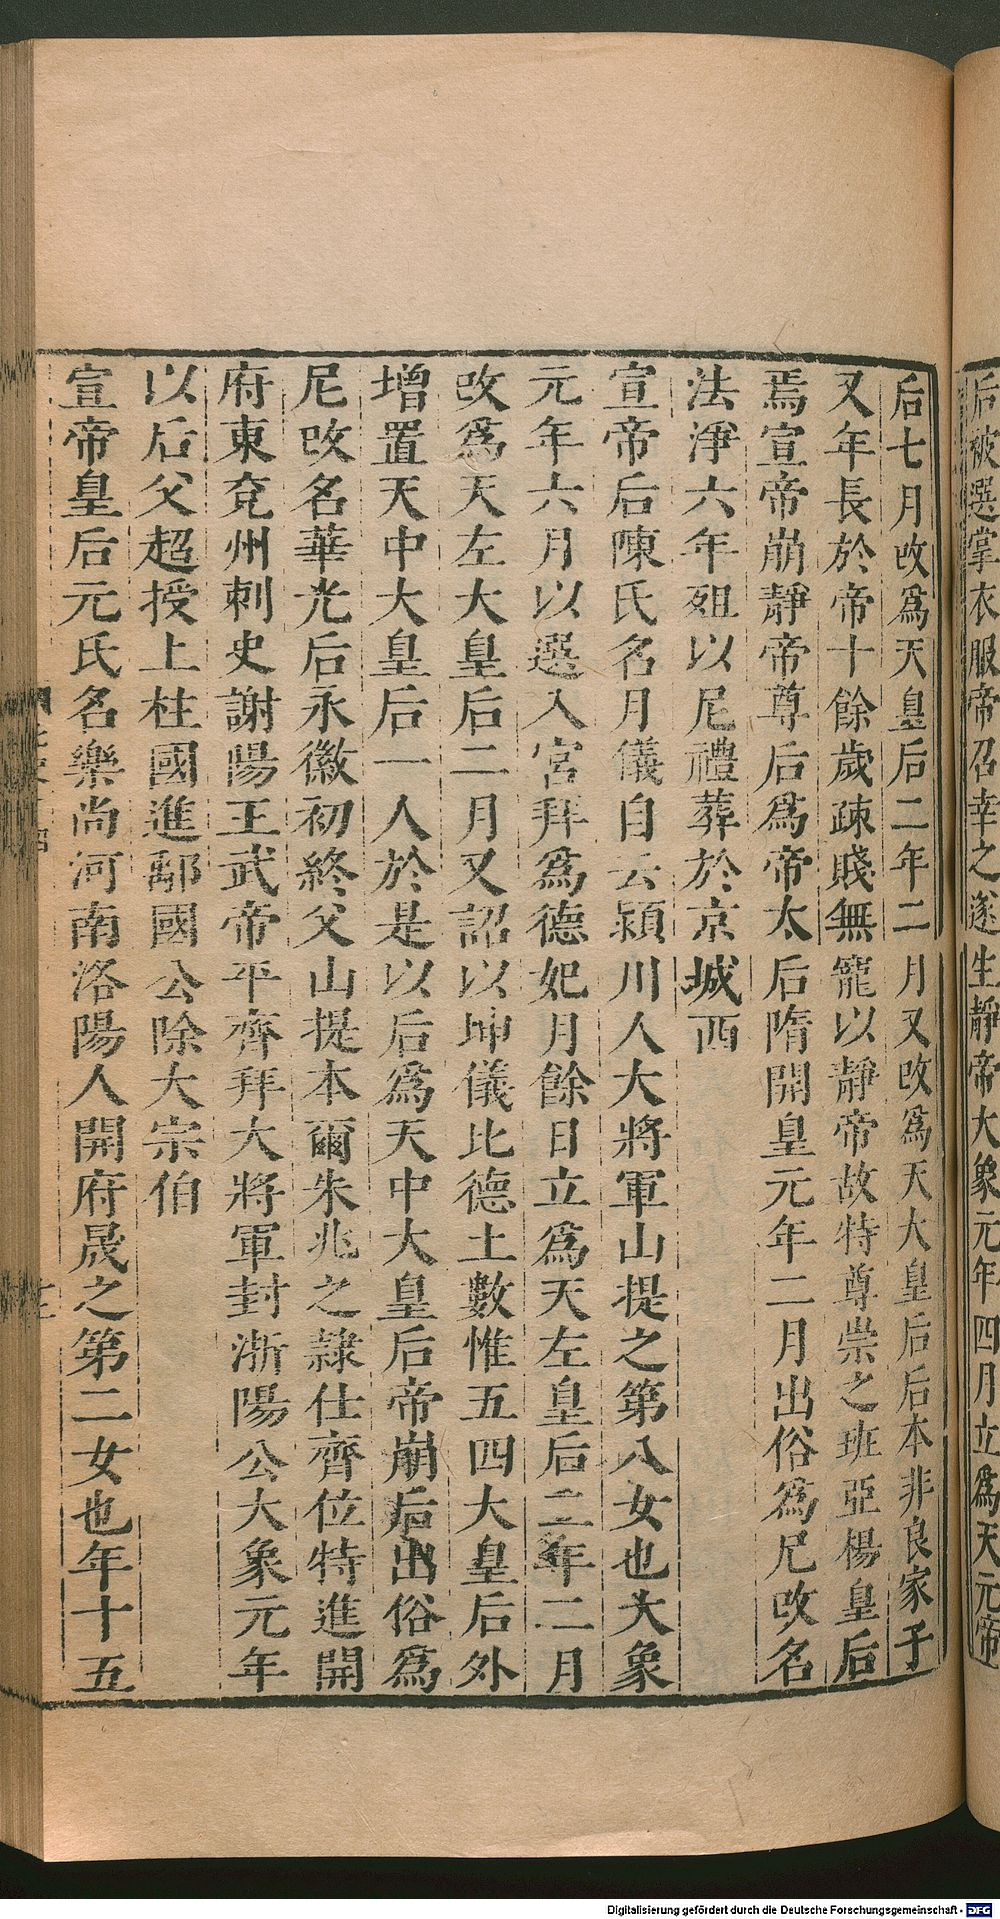 后被選掌衣服帝召幸之遂生靜帝大象元年四月立爲天元帝
后七月改爲天皇后二年二月又改爲天大皇后后本非良家子
又年長於帝十餘歲疎賤無寵以靜帝故特尊崇之班亞楊皇后
焉宣帝崩靜帝尊后爲帝太后隋開皇元年二月出俗爲尼改名
法淨六年殂以尼禮葬於京城西
宣帝后陳氏名月儀自云潁川人大將軍山提之第八女也大象
元年六月以選入宮拜爲德妃月餘日立爲天左皇后二年二月
改爲天左大皇后二月又詔以坤儀比德土數惟五四大皇后外
增置天中大皇后一人於是以后爲天中大皇后帝崩后出俗爲
尼改名華光后永徽初終父山提本爾朱兆之隸仕齊位特進開
府東兗州刺史謝陽王武帝平齊拜大將軍封淅陽公大象元年
以后父超授上柱國進鄅國公除大宗伯
宣帝皇后元氏名樂尚河南洛陽人開府晟之第二女也年十五
Digitalisierung gefördert durch die Deutsche Forschungsgemeinschaft - DFG